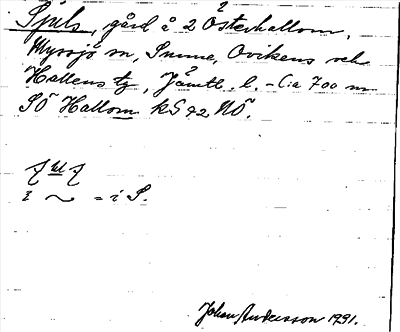 Sjuls, gård å 2 Österhallom,
Myssjö sn, Sunne, Ovikens och
Hallens tg, Jämtl. l. – C:a 700 m
SÖ Hallom kS 92 NÖ.
i ~ = i S.
Johan Andersson 1991.